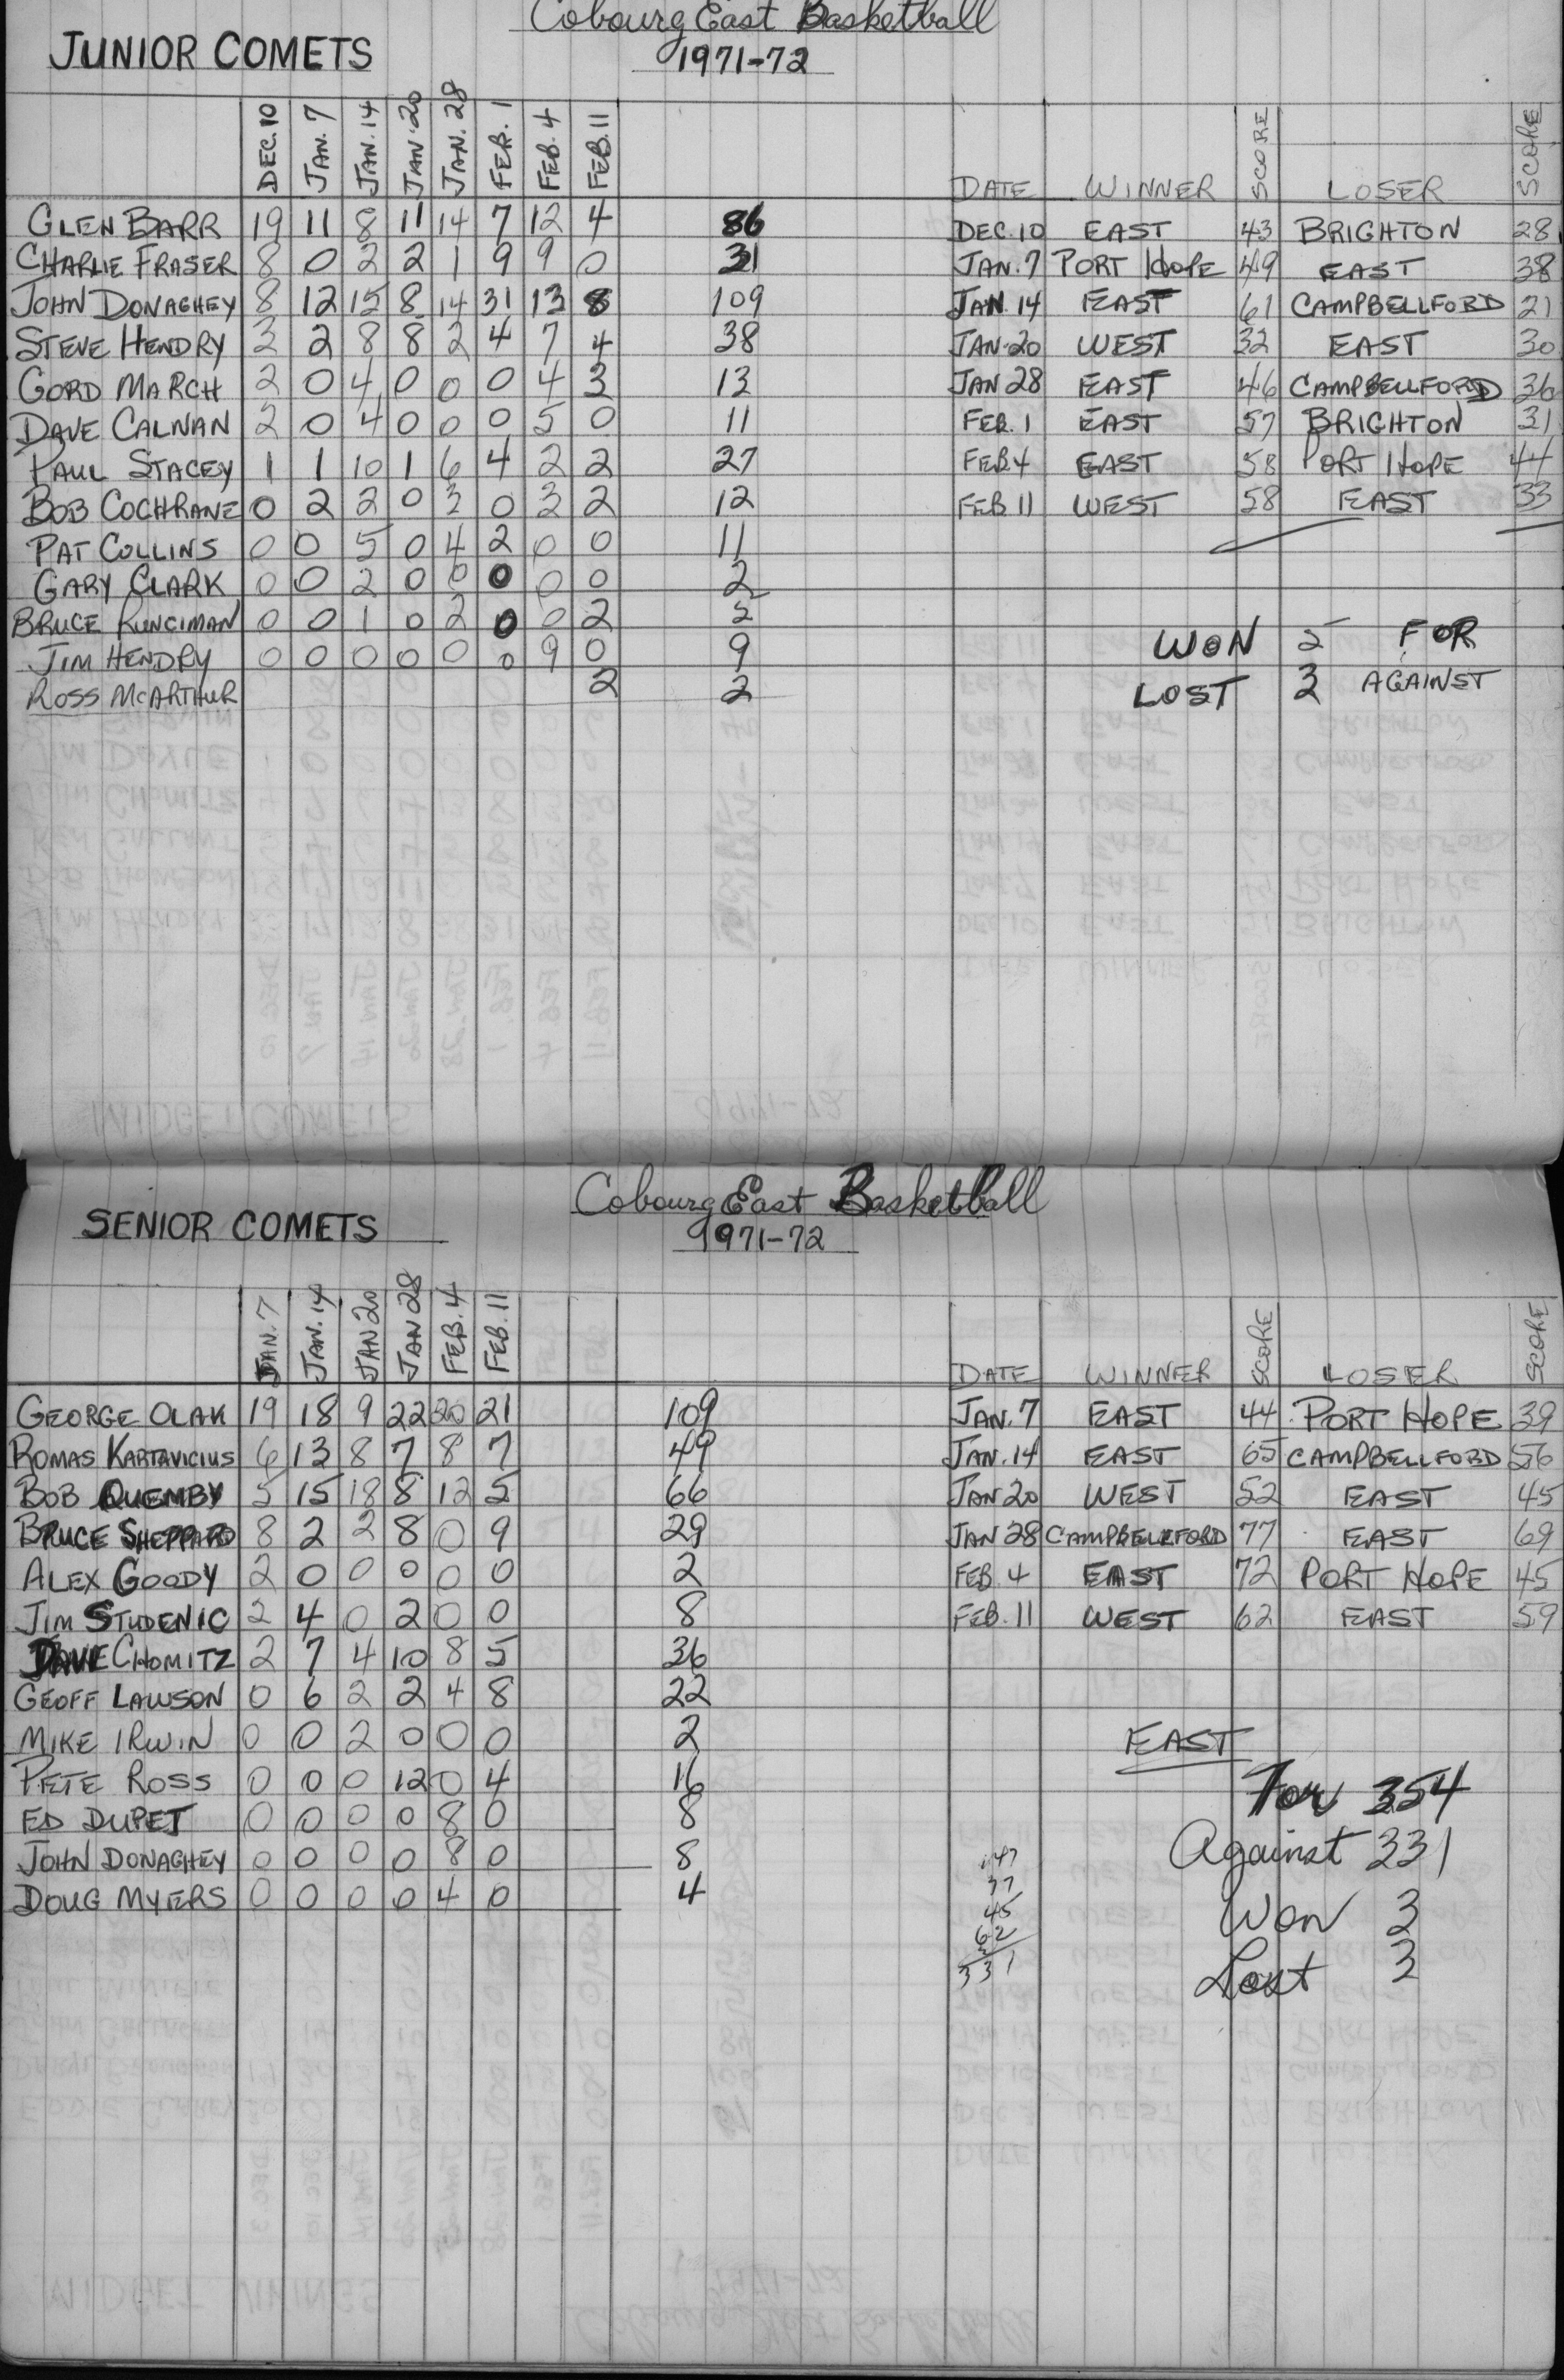 Cobourg East Basketball
JUNIOR COMETS 1971-72
DEC. 10 JAN. 7 JAN. 14 JAN. 20 JAN. 28 FEB. 1 FEB. 4 FEB. 11 DATE WINNER SCORE LOSER SCORE
GLEN BARR 19 11 8 11 14 7 12 4 86 DEC. 10 EAST 43 BRIGHTON 28
CHARLIE FRASER 8 0 2 2 1 9 9 0 31 JAN. 7 PORT HOPE 49 EAST 38
JOHN DONAGHEY 8 12 15 8 14 31 13 8 109 JAN. 14 EAST 61 CAMPBELLFORD 21
STEVE HENDRY 3 2 8 8 2 4 7 4 38 JAN. 20 WEST 32 EAST 30
GORD MARCH 2 0 4 0 0 0 4 3 13 JAN 28 EAST 46 CAMPBELLFORD 36
DAVE CALNAN 2 0 4 0 0 0 5 0 11 FEB. 1 EAST 57 BRIGHTON 31
PAUL STACEY 1 1 10 1 6 4 2 2 27 FEB. 4 EAST 58 PORT HOPE 44
BOB COCHRANE 0 2 2 0 3 0 3 2 12 FEB 11 WEST 58 EAST 33
PAT COLLINS 0 0 5 0 4 2 0 0 11
GARY CLARK 0 0 2 0 0 0 0 0 2
BRUCE RUNCIMAN 0 0 1 0 2 0 0 2 5
WON 5 FOR
JIM HENDRY 0 0 0 0 0 0 9 0 9
ROSS McARTHUR 2 2
LOST 3 AGAINST
Cobourg East Basketball
SENIOR COMETS 1971-72
JAN. 7 JAN. 14 JAN 20 JAN 28 FEB. 4 FEB. 11 DATE WINNER SCORE LOSER SCORE
GEORGE OLAK 19 18 9 22 20 21 109 JAN. 7 EAST 44 PORT HOPE 39
ROMAS KARTAVICIUS 6 13 8 7 8 7 49 JAN. 14 EAST 65 CAMPBELLFORD 56
BOB QUEMBY 5 15 18 8 12 5 66 JAN 20 WEST 52 EAST 45
BRUCE SHEPPARD 8 2 2 8 0 9 29 JAN 28 CAMPBELLFORD 77 EAST 69
ALEX GOODY 2 0 0 0 0 0 2 FEB. 4 EAST 72 PORT HOPE 45
JIM STUDENIC 2 4 0 2 0 0 8 FEB. 11 WEST 62 EAST 59
DAVE CHOMITZ 2 7 4 10 8 5 36
GEOFF LAWSON 0 6 2 2 4 8 22
MIKE IRWIN 0 0 2 0 0 0 2
EAST
PETE ROSS 0 0 0 12 0 4 16
For 354
ED DUPET 0 0 0 0 8 0 8
Against 331
JOHN DONAGHEY 0 0 0 0 8 0 8
DOUG MYERS 0 0 0 0 4 0 4
45
62
331
Won 3
Lost 3